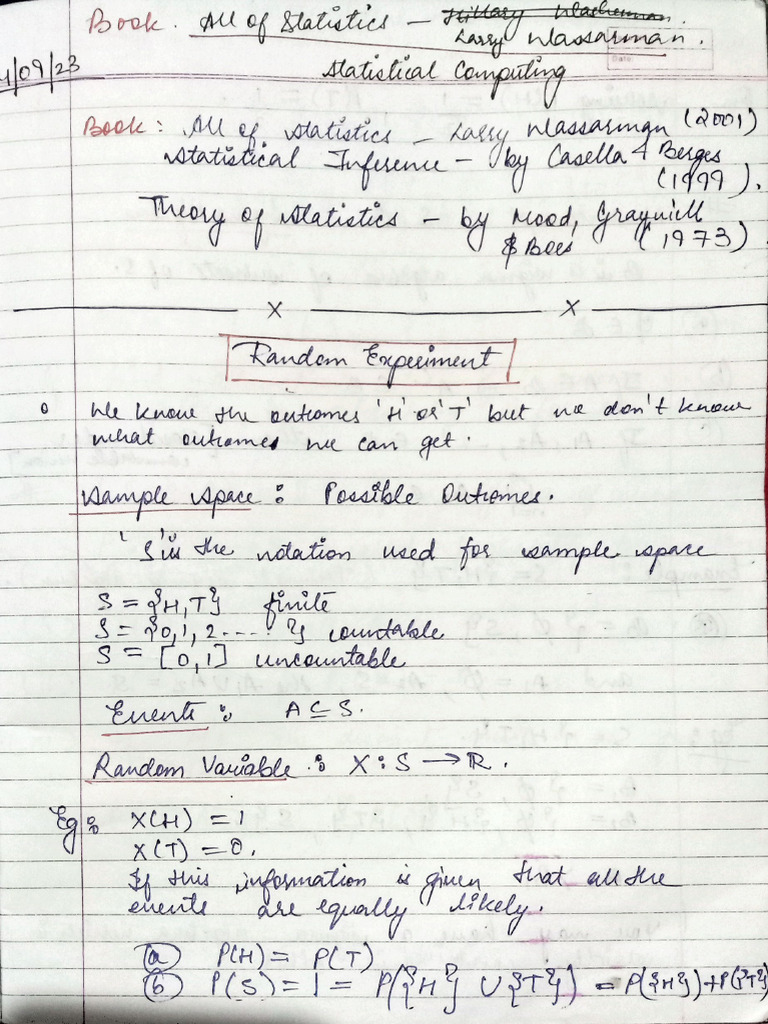 Book. All of Statistics - Hillary Wasserman.
Larry Wassarman.
1/09/23
Statistical Computing
Book: All of Statistics - Larry Wassarman (2001)
Statistical Inference - by Casella & Berges
(1999).
Theory of Statistics - by Mood, Grayniell
& Boes (1973)
X X
Random Experiment
We know the outcomes 'H' or 'T' but we don't know
what outcomes we can get.
Sample Space : Possible Outcomes.
'S' is the notation used for sample space
S = {H,T} finite
S = {0,1,2.....} countable
S = [0,1] uncountable
Events : A ⊆ S.
Random Variable : X : S → R.
Eg : X(H) = 1
X(T) = 0.
If this information is given that all the
events are equally likely.
(a) P(H) = P(T)
(b) P(S) = 1 = P({H} ∪ {T}) = P({H}) + P({T})